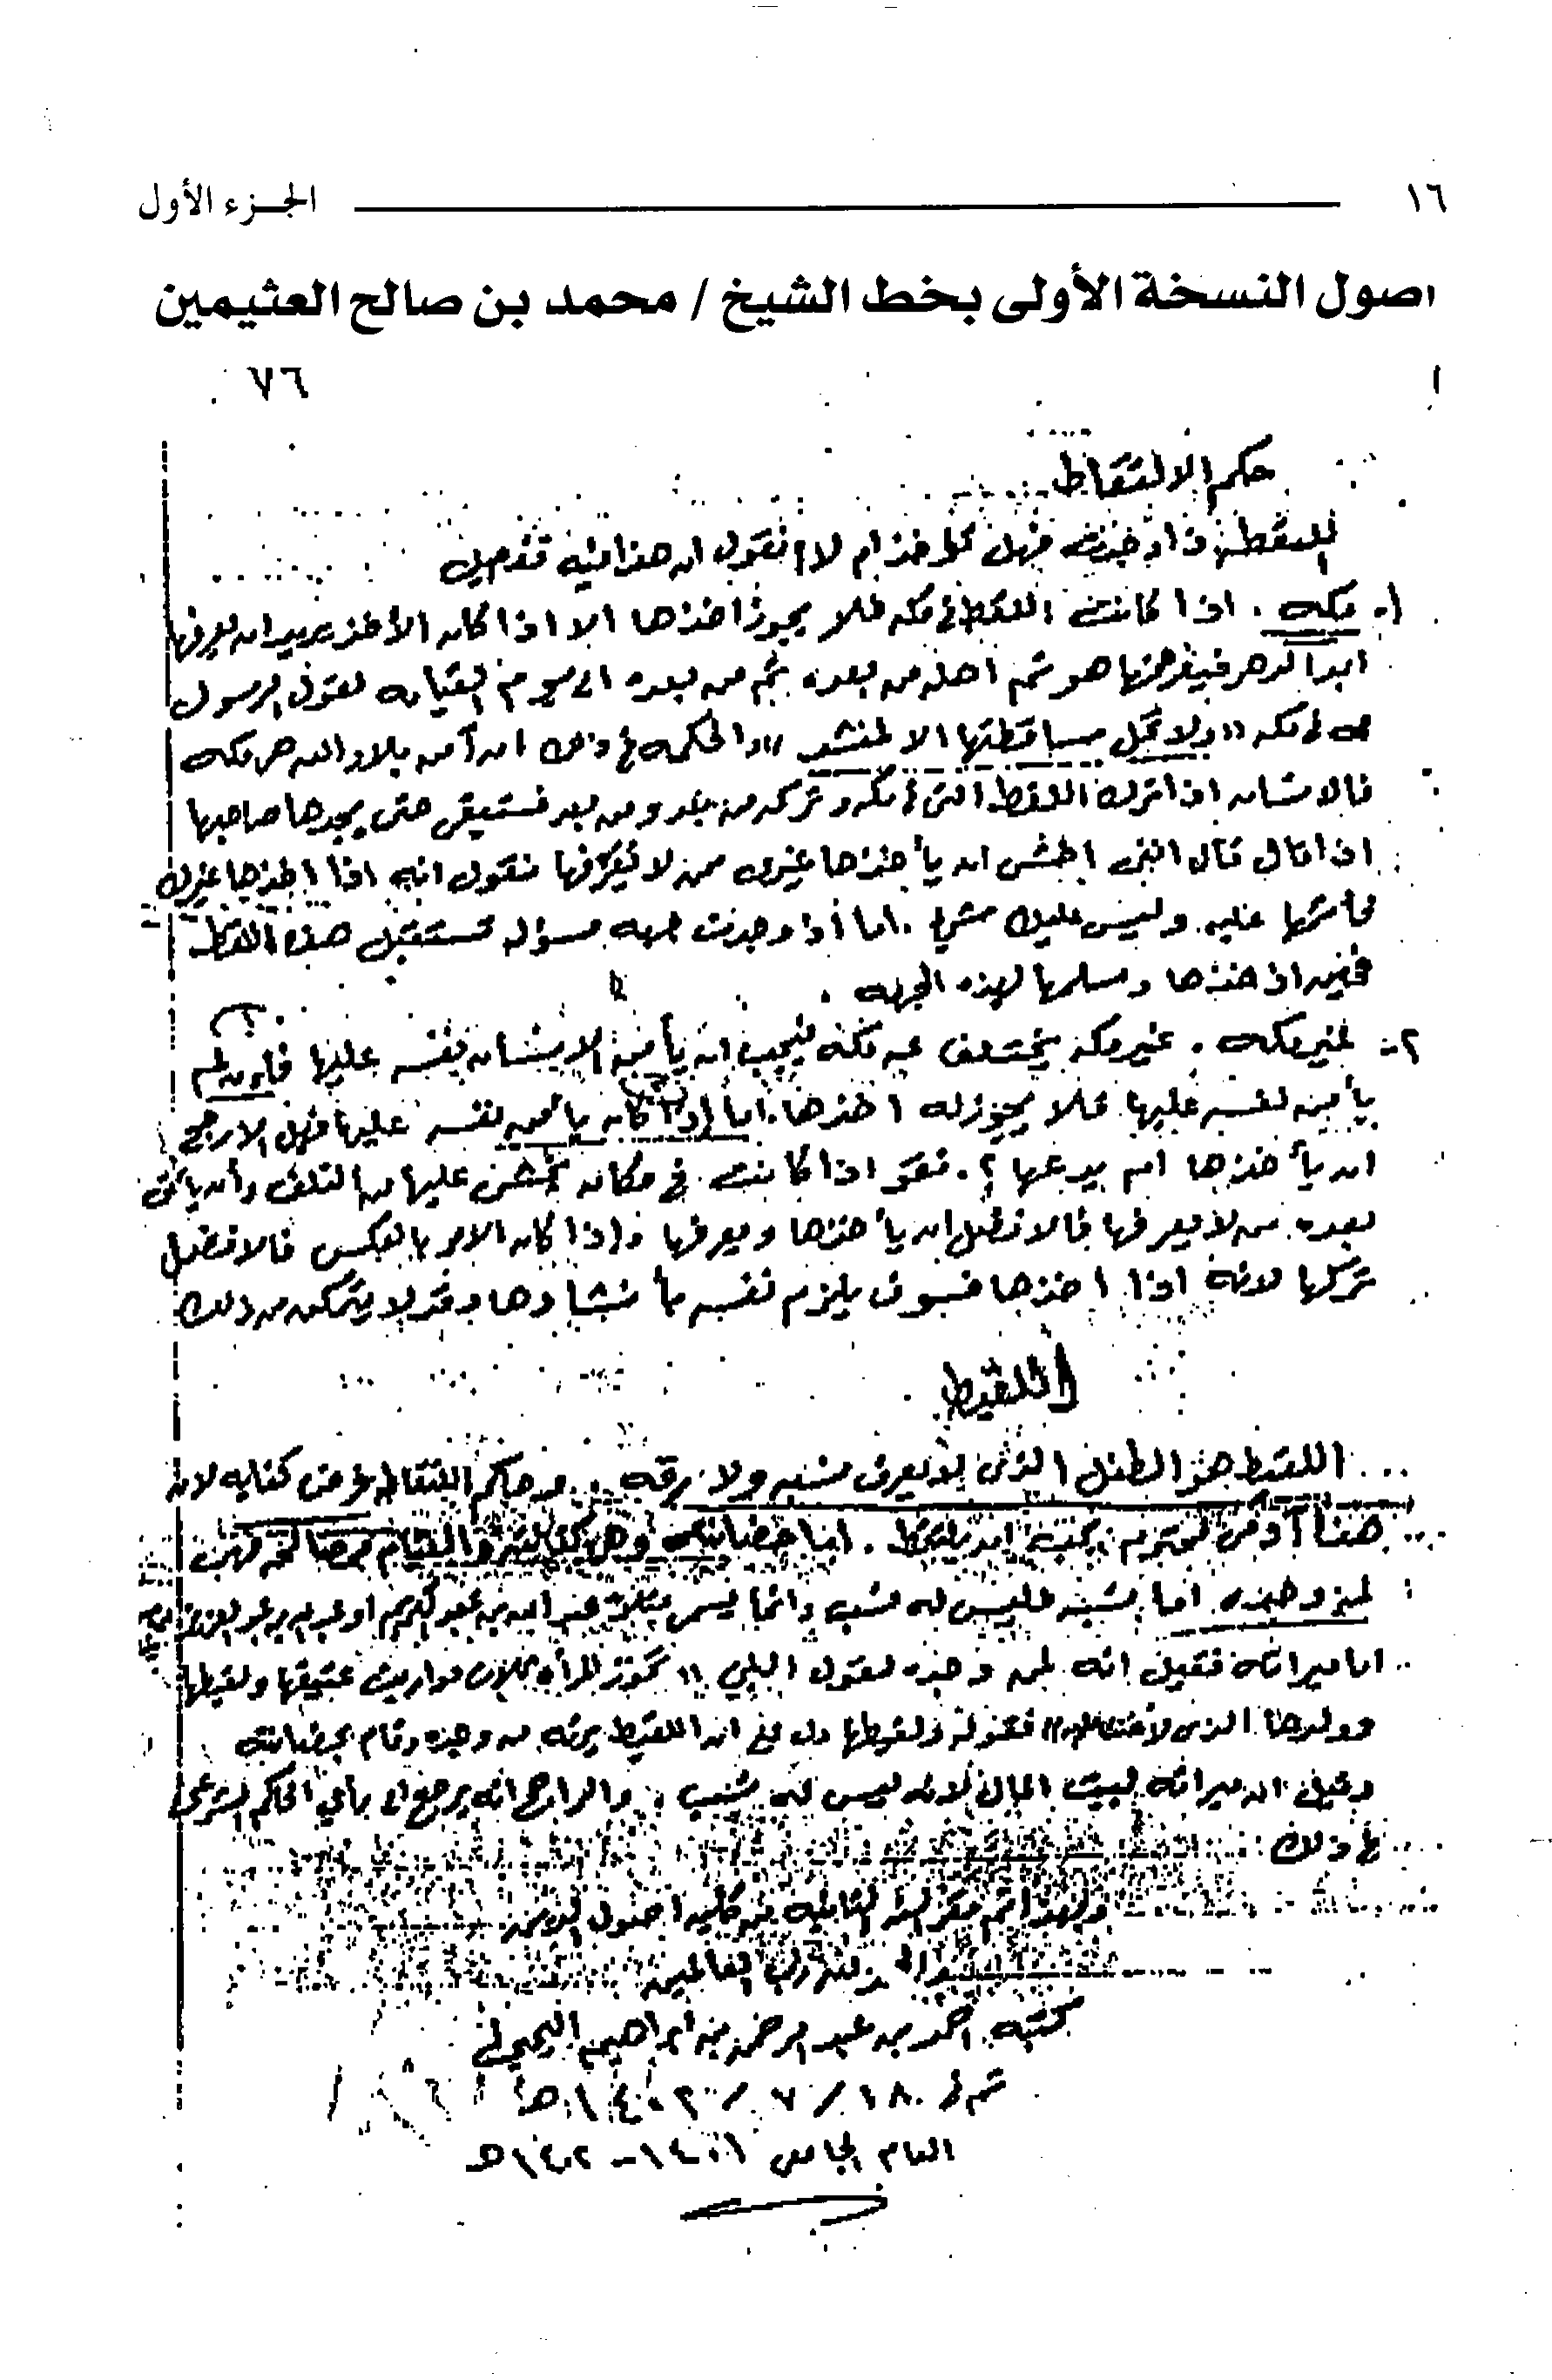 ١٦
الجـزء الأول
اصول النسخة الأولى بخط الشيخ / محمد بن صالح العثيمين
٧٦
حكم الالتقاط
اللقطة اذا وجدت فهل تؤخذ ام لا؟ نقول ان هذا فيه تفصيل
١- مكه . اذا كانت اللقطة في مكه فلا يجوز اخذها الا اذا كان الآخذ يريد ان يعرفها
ابد الدهر فيعرفها هو ثم اهله من بعده ثم من بعده الى يوم القيامه لقول الرسول
في مكه (( ولا تحل ساقطتها الا لمنشد )) والحكمه في ذلك ان آمن بلاد الله هي مكه
فالانسان اذا ترك اللقطة التي في مكه وتركه من بعده ومن بعد فستبقى حتى يجدها صاحبها
اذا قال قائل انني اخشى ان يأخذها غيري ممن لا يعرفها فنقول انه اذا اخذها غيرك
فإثمها عليه وليس عليك شيء . اما إذا وجدت جهه مسؤله تستقبل هذه اللقطه
فحينئذ خذها وسلمها لهذه الجهه .
٢- غير مكه . غير مكه يختلف عن مكه فيجب ان يأمن الانسان نفسه عليها فإن لم
يأمن نفسه عليها فلا يجوز له اخذها . اما إذا كان يأمن نفسه عليها فهل الارجح
ان يأخذها ام يدعها ؟ . نقول اذا كانت في مكان يخشى عليها من التلف وأن يأتي
بعده من لا يعرفها فالافضل ان يأخذها ويعرفها وإذا كان الامر بالعكس فالافضل
تركها لانه اذا اخذها فسوف يلزم نفسه بانشادها وقد لا يتمكن من ذلك
اللقيط
اللقيط هو الطفل الذي لا يعرف نسبه ولا رقه . وحكم التقاطه فرض كفايه لانه
هذا آدمي محترم يجب ان . اما حضانته وهي والقيام بمصالحه فهي
لمن وجده اما نسبه فليس له نسب وانما يسمى مثلا عبد الله بن عبد الكريم او عبد الله بن عبد العزيز
اما ميراثه فقيل انه لمن وجده لقول النبي (( تحوز المرأة ثلاث مواريث عتيقها ولقيطها
وولدها الذي لاعنت عليه )) فقوله ولقيطها دل على ان اللقيط يرثه من وجده وقام بحضانته
وقيل ان ميراثه لبيت المال لانه ليس له نسب . والراجح انه يرجع الى رأي الحاكم الشرعي
في ذلك
وبهذا تم مقرر السنه الثانيه من كلية اصول الدين
والحمد لله رب العالمين
كتبه احمد بن عبد الرحمن بن ابراهيم
تم في ١٨ / ٧ / ١٤٠٢هـ
العام الجامعي ١٤٠١ - ١٤٠٢هـ